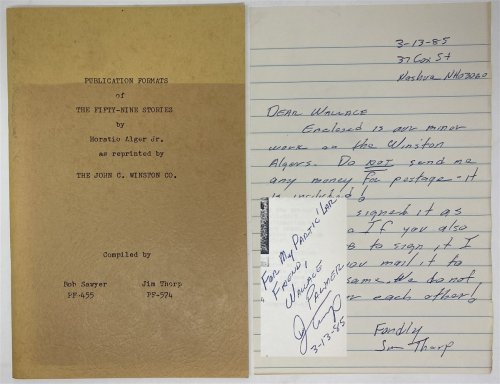 PUBLICATION FORMATS
of
THE FIFTY-NINE STORIES
by
Horatio Alger Jr.
as reprinted by
THE JOHN C. WINSTON CO.
Compiled by
Bob Sawyer Jim Thorp
PF-455 PF-574
3-13-85
37 Cox St
Nashua NH 03060
DEAR WALLACE
Enclosed is our minor
work on the Winston
Algers. Do NOT send me
any money for postage - it
is included!
signed it as
If you also
to sign it I
you mail it to
same. We do not
each other!
Fondly
Jim Thorp
FOR MY PARTIC'LAR
FRIEND,
WALLACE
PALMER
J Thorp
3-13-85